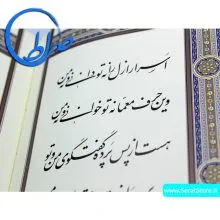 صراط
اسرار ازل را نه تو دانی و نه من
وین حرف معما نه تو خوانی و نه من
هست از پس پرده گفتگوی من و تو
www.Seratstore.ir